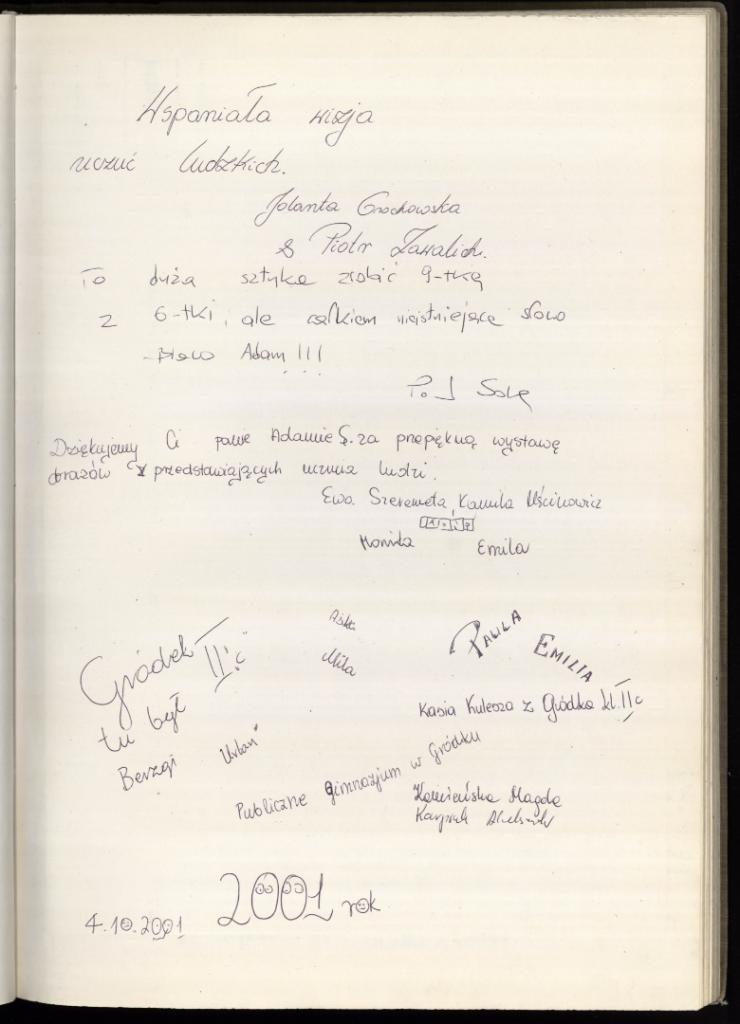 Wspaniała wizja
uczuć ludzkich.
Jolanta Grochowska
& Piotr Zawalich.
To duża sztuka zrobić 9-tkę
z 6-tki, ale całkiem nieistniejące słowo
- brawo Adam !!!
P. J Sokę
Dziękujemy Ci panie Adamie S. za przepiękną wystawę
obrazów przedstawiających uczucia ludzi.
Ewa Szeremeta, Kamila Uścinowicz
Monika Emila
Gródek II "c"
tu był
Berzgi
Urban
Aśka
Mila
PAULA EMILIA
Kasia Kulesza z Gródka kl. II c
Publiczne gimnazjum w Gródku
Kamieńska Magda
Karpiuk
4.10.2001 2001 rok